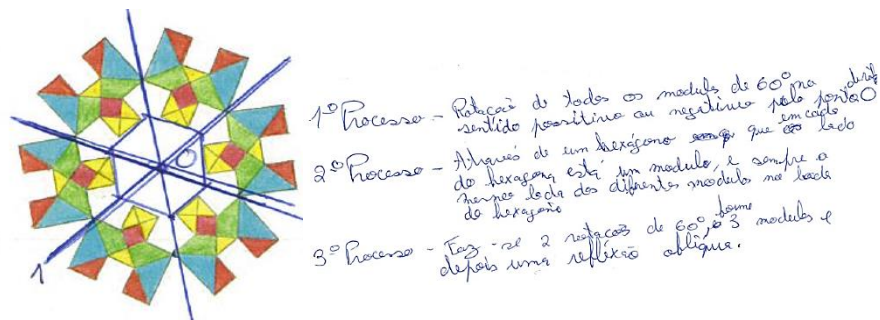 O
1
1º Processo - Rotação de todos os modulos de 60º na
sentido positivo ou negativo pelo ponto O
2º Processo - Através de um hexágono que em cada lado
do hexagono está um modulo, e sempre o
mesmo lado dos diferentes modulos no lado
do hexagono
3º Processo - Faz-se 2 rotações de 60º, forme 3 modulos e
depois uma reflexão oblíqua.